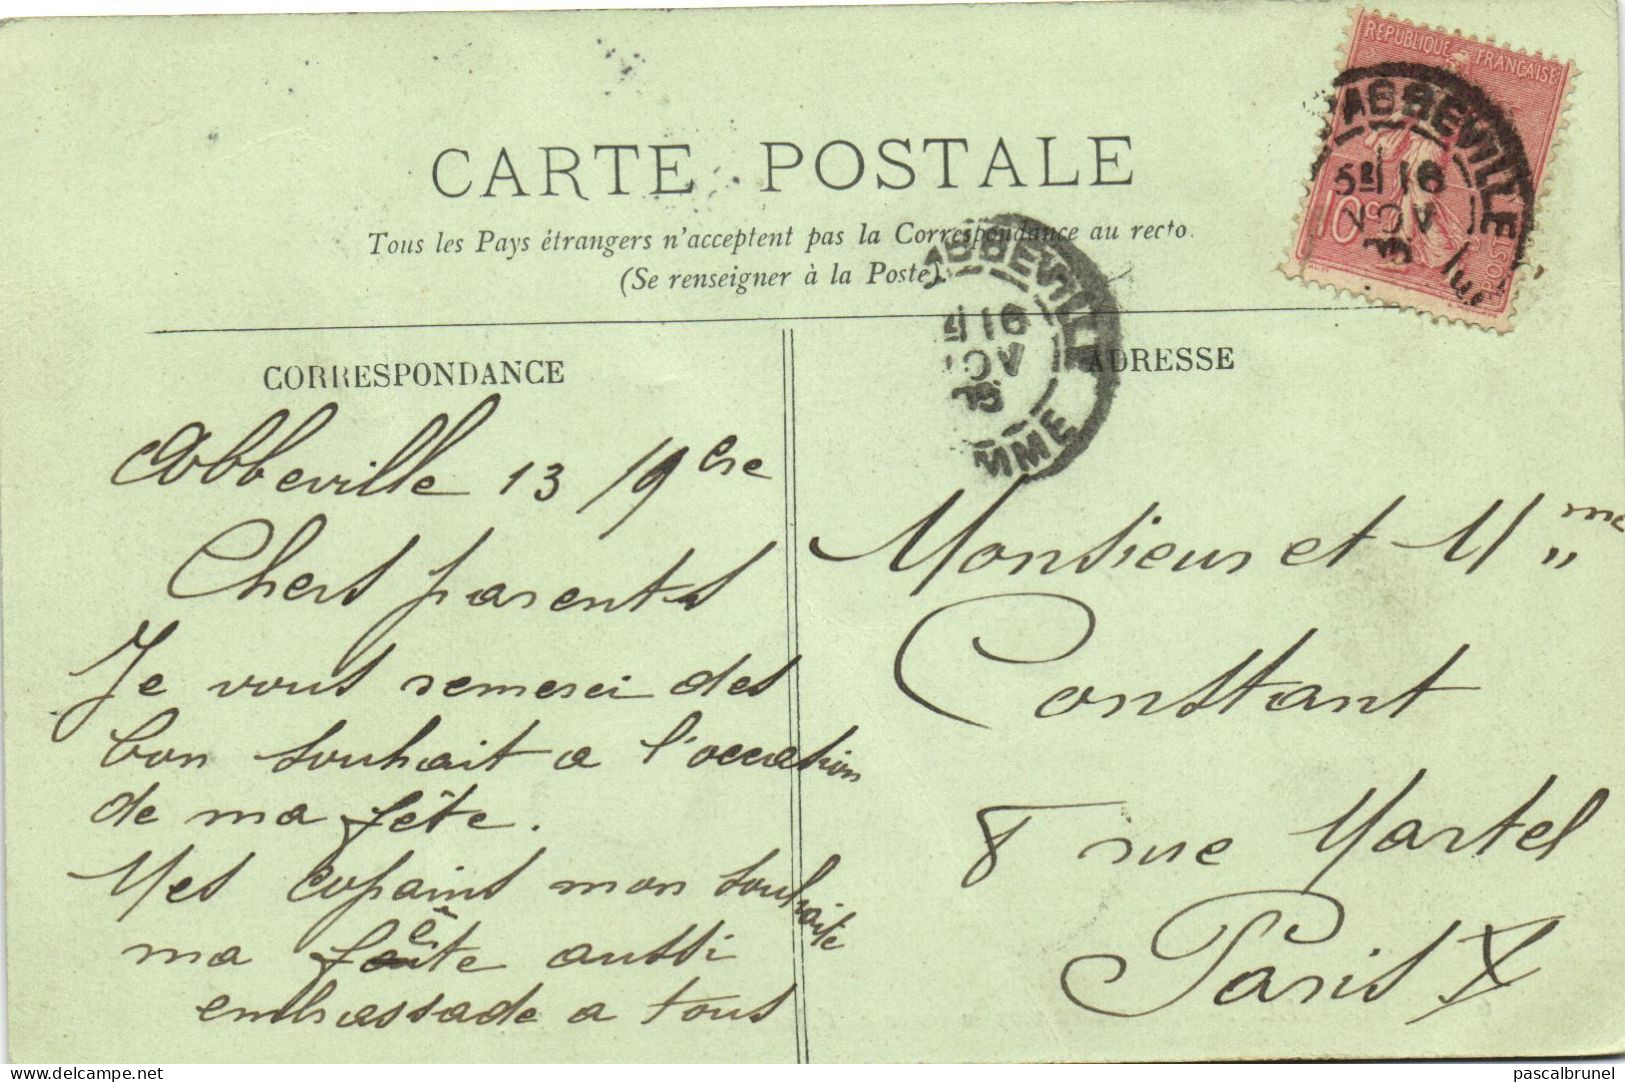 RÉPUBLIQUE FRANÇAISE
ABBEVILLE
5E 16
NOV
10c
POSTES
CARTE POSTALE
Tous les Pays étrangers n'acceptent pas la Correspondance au recto.
(Se renseigner à la Poste)
ABBEVILLE
16
NOV
MME
CORRESPONDANCE
ADRESSE
Abbeville 13 / 9bre
Chers parents
Je vous remerci des
bon souhait a l'occasion
de ma fête.
Mes copains mon souhaite
ma fête aussi
embrassade a tous
Monsieur et Mme
Constant
8 rue Martel
Paris X
delcampe.net
pascalbrunel